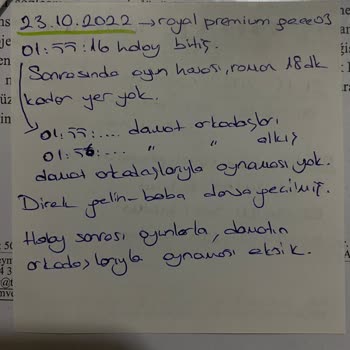 23.10.2022 → royal premium
01:55:16 halay bitiş.
Sonrasında oyun havası, roman 18 dk
kadar yer yok.
01:55:.... damat arkadaşları
01:56:.... " " alkış
damat arkadaşlarıyla oynaması yok.
Direk gelin-baba dansa geçilmiş.
Halay sonrası oyunlarla, damatın
arkadaşlarıyla oynaması eksik.